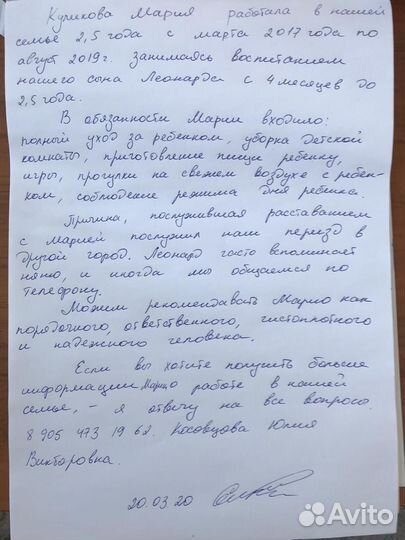 Куликова Мария работала в нашей
семье 2,5 года с марта 2017 года по
август 2019 г. занимаясь воспитанием
нашего сына Леонарда с 4 месяцев до
2,5 года.
В обязанности Марии входило:
полный уход за ребенком, уборка детской
комнаты, приготовление пищи ребенку,
игры, прогулки на свежем воздухе с ребен-
ком, соблюдение режима дня ребенка.
Причина, послужившая расставанием
с Марией послужил наш переезд в
другой город. Леонард часто вспоминает
няню, и иногда мы общаемся по
телефону.
Можем рекомендовать Марию как
порядочного, ответственного, чистоплотного
и надежного человека.
Если вы хотите получить больше
информации о работе в нашей
семье, - я отвечу на все вопросы.
8 905 473 19 62. Косовцова Юлия
Викторовна.
20.03.20
Avito